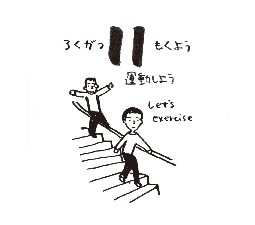 ろくがつ 11 もくよう
運動しよう
Let's
exercise